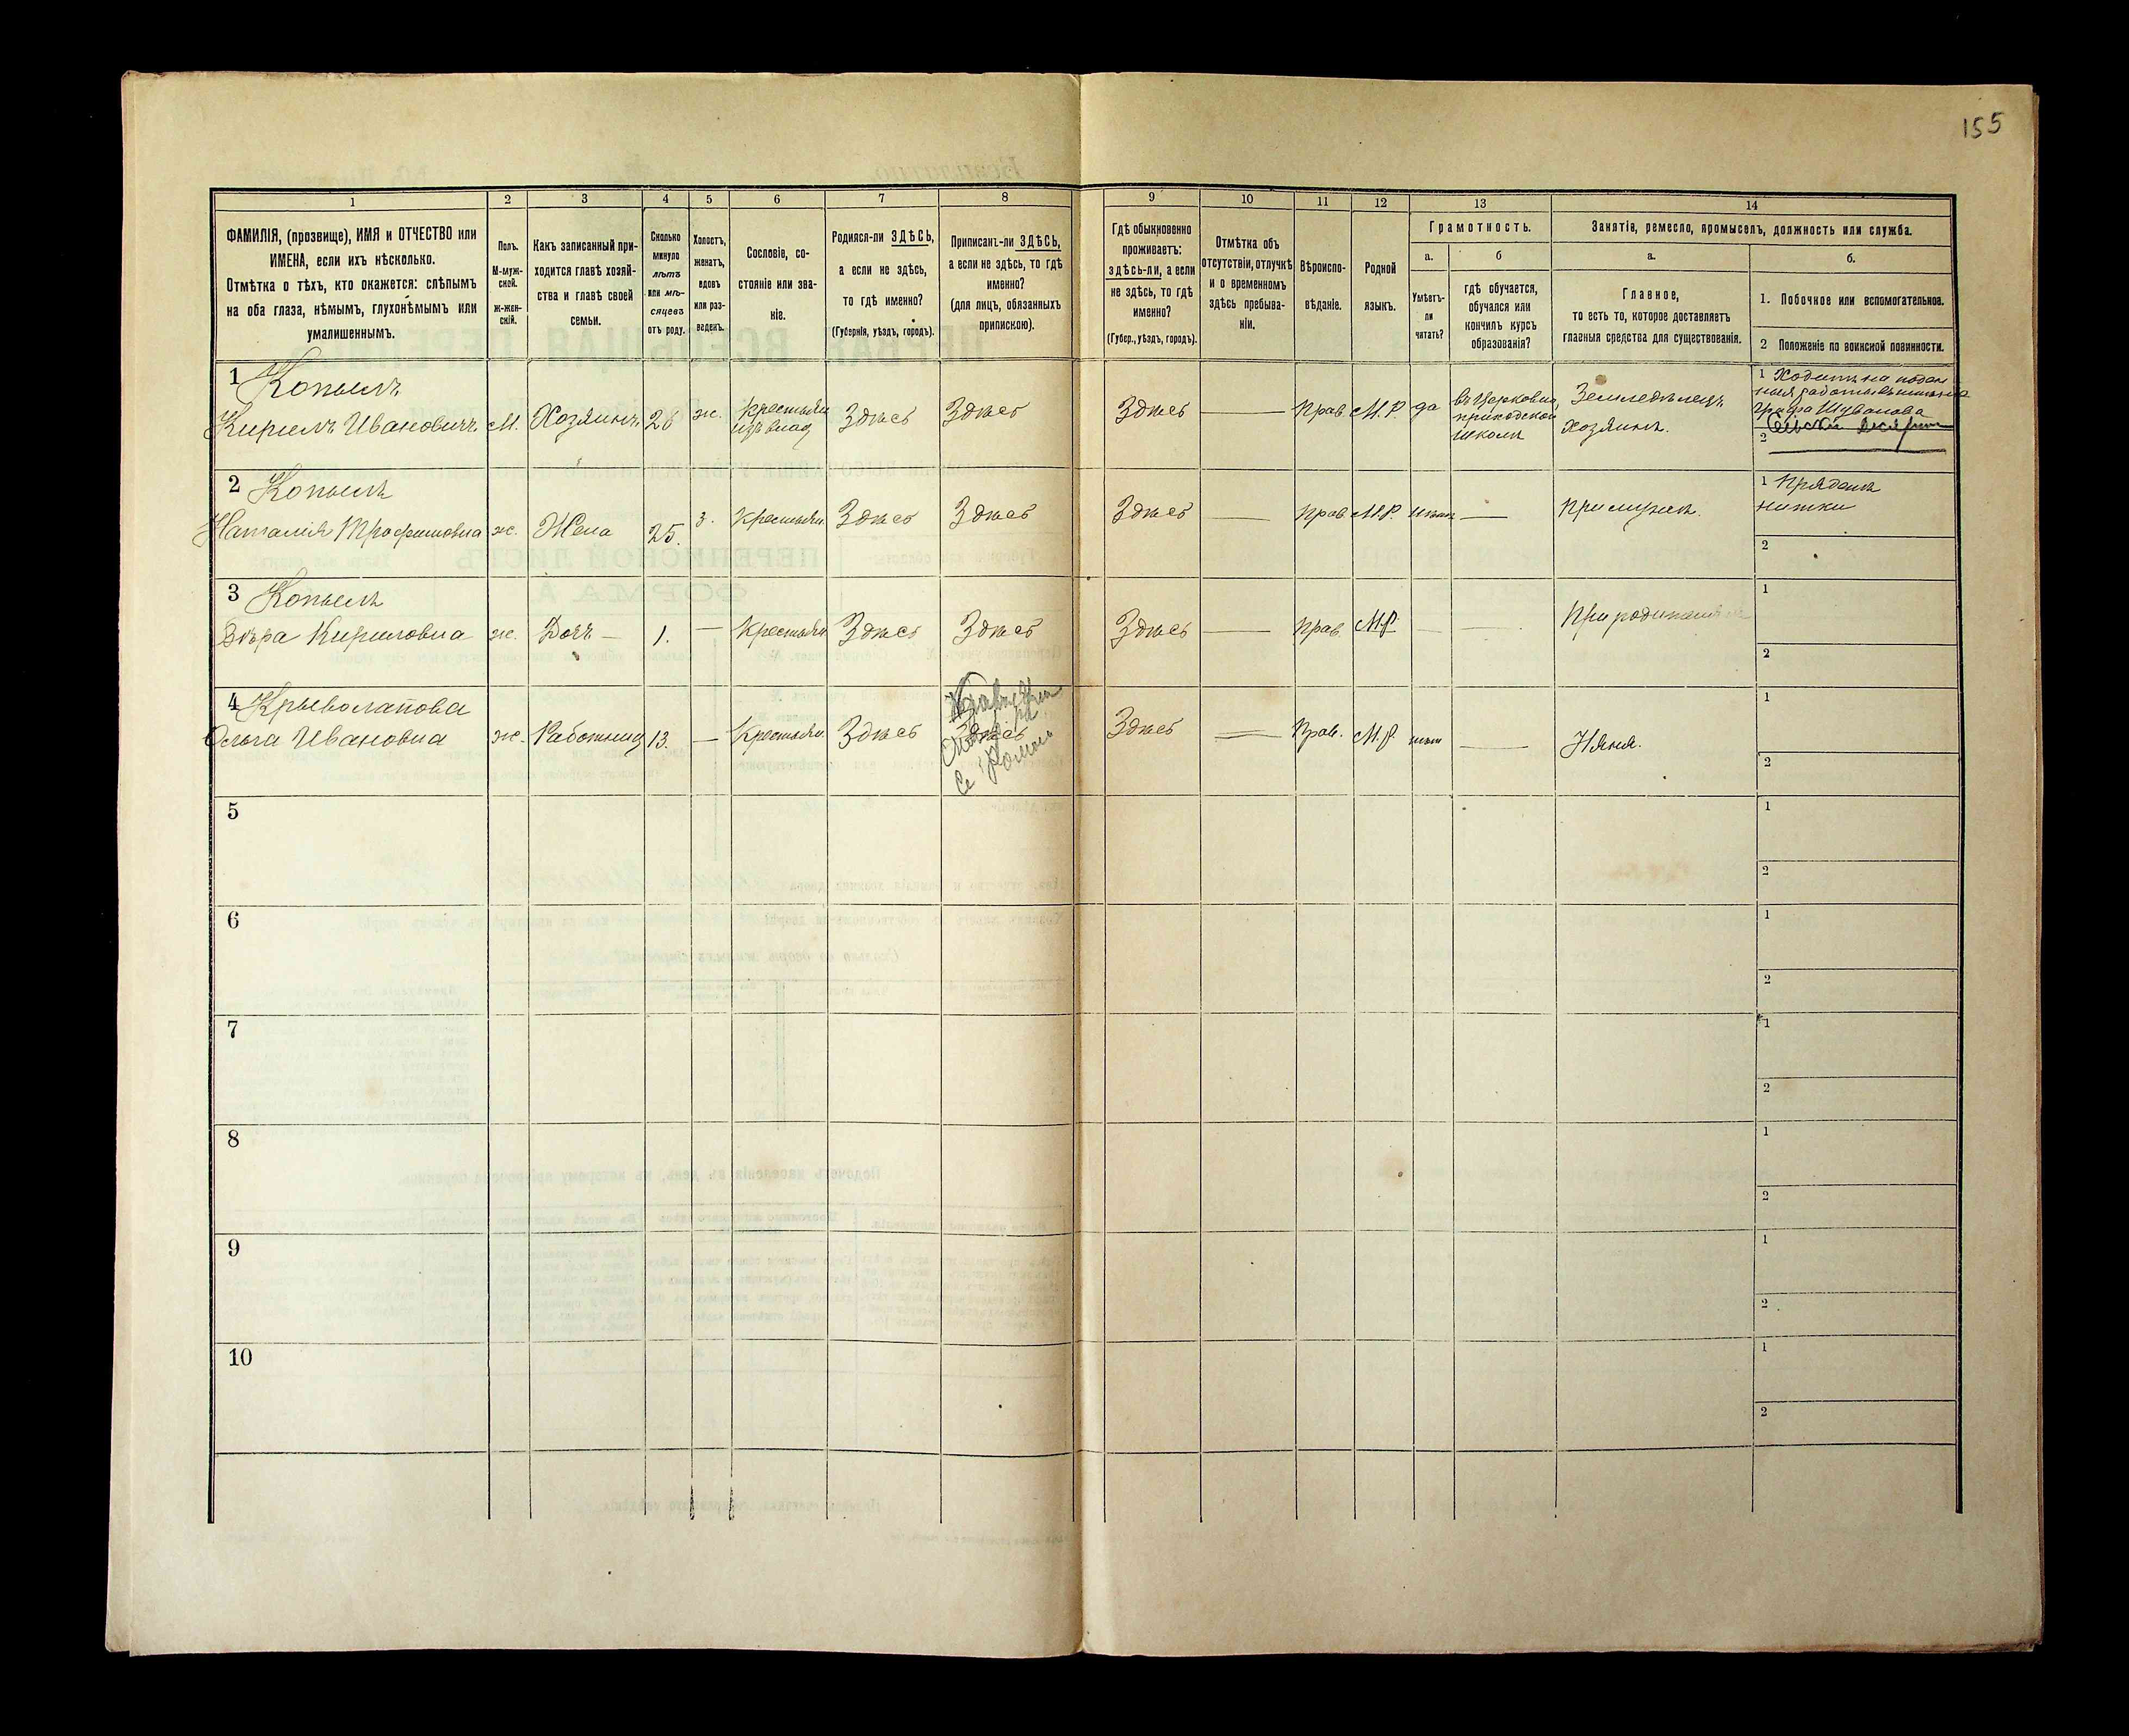 155
1
2
3
4
5
6
7
8
9
10
11
12
13
14
ФАМИЛІЯ, (прозвище), ИМЯ и ОТЧЕСТВО или
ИМЕНА, если ихъ нѣсколько.
Отмѣтка о тѣхъ, кто окажется: слѣпымъ
на оба глаза, нѣмымъ, глухонѣмымъ или
умалишеннымъ.
Полъ.
М-муж-
ской.
ж-жен-
скій.
Какъ записанный при-
ходится главѣ хозяй-
ства и главѣ своей
семьи.
Сколько
минуло
лѣтъ
или мѣ-
сяцевъ
отъ роду.
Холостъ,
женатъ,
вдовъ
или раз-
веденъ.
Сословіе, со-
стояніе или зва-
ніе.
Родился-ли ЗДѢСЬ,
а если не здѣсь,
то гдѣ именно?
(Губернія, уѣздъ, городъ).
Приписанъ-ли ЗДѢСЬ,
а если не здѣсь, то гдѣ
именно?
(для лицъ, обязанныхъ
припискою).
Гдѣ обыкновенно
проживаетъ:
здѣсь-ли, а если
не здѣсь, то гдѣ
именно?
(Губер., уѣздъ, городъ).
Отмѣтка объ
отсутствіи, отлучкѣ
и о временномъ
здѣсь пребыва-
ніи.
Вѣроиспо-
вѣданіе.
Родной
языкъ.
Грамотность.
а.
Умѣетъ-
ли
читать?
б
гдѣ обучается,
обучался или
кончилъ курсъ
образованія?
Занятіе, ремесло, промыселъ, должность или служба.
а.
Главное,
то есть то, которое доставляетъ
главныя средства для существованія.
б.
1. Побочное или вспомогательное.
2 Положеніе по воинской повинности.
1 Копылъ
Кирилъ Ивановичъ
М.
Хозяинъ
26
ж.
Крестьян
изъ влад
Здѣсь
Здѣсь
Здѣсь
—
прав
М.Р.
да
въ Церковно
приходской
школѣ
Земледѣлецъ
Хозяинъ.
1 Ходитъ на
Графа Шувалова
2
2 Копылъ
Наталія Трофимовна
ж.
Жена
25.
з.
Крестьян
Здѣсь
Здѣсь
Здѣсь
—
прав
М.Р.
—
При мужѣ.
1 Прядетъ
нитки
2
3 Копылъ
Вѣра Кириловна
ж.
Дочь
1.
—
Крестьян
Здѣсь
Здѣсь
Здѣсь
—
прав.
М.Р.
—
—
При родителяхъ
1
2
4 Крыволапова
Ольга Ивановна
ж.
Работниц
13.
—
Крестьян
Здѣсь
Здѣсь
—
Прав.
М.Р.
нѣт
—
Няня.
1
2
5
1
2
6
1
2
7
1
2
8
1
2
9
1
2
10
1
2